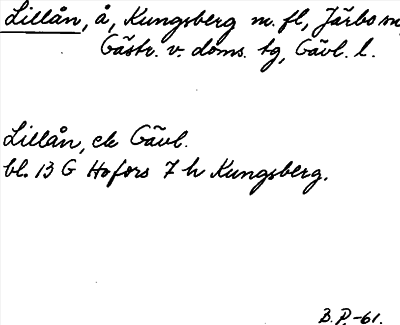 Lillån, å, Kungsberg m. fl, Järbo sn,
Gästr. v. doms. tg, Gävl. l.
Lillån, ek Gävl.
bl. 13 G Hofors 7 h Kungsberg.
B.P.-61.